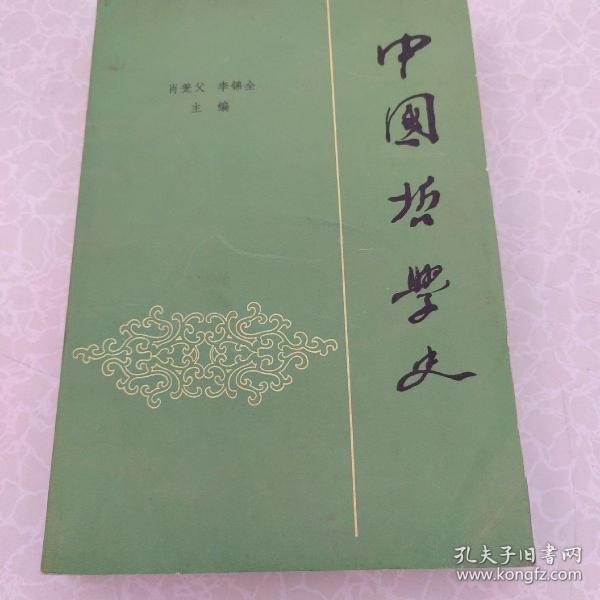 肖萐父 李锦全
主 编
中國哲學史
孔夫子旧书网
www.kongfz.com